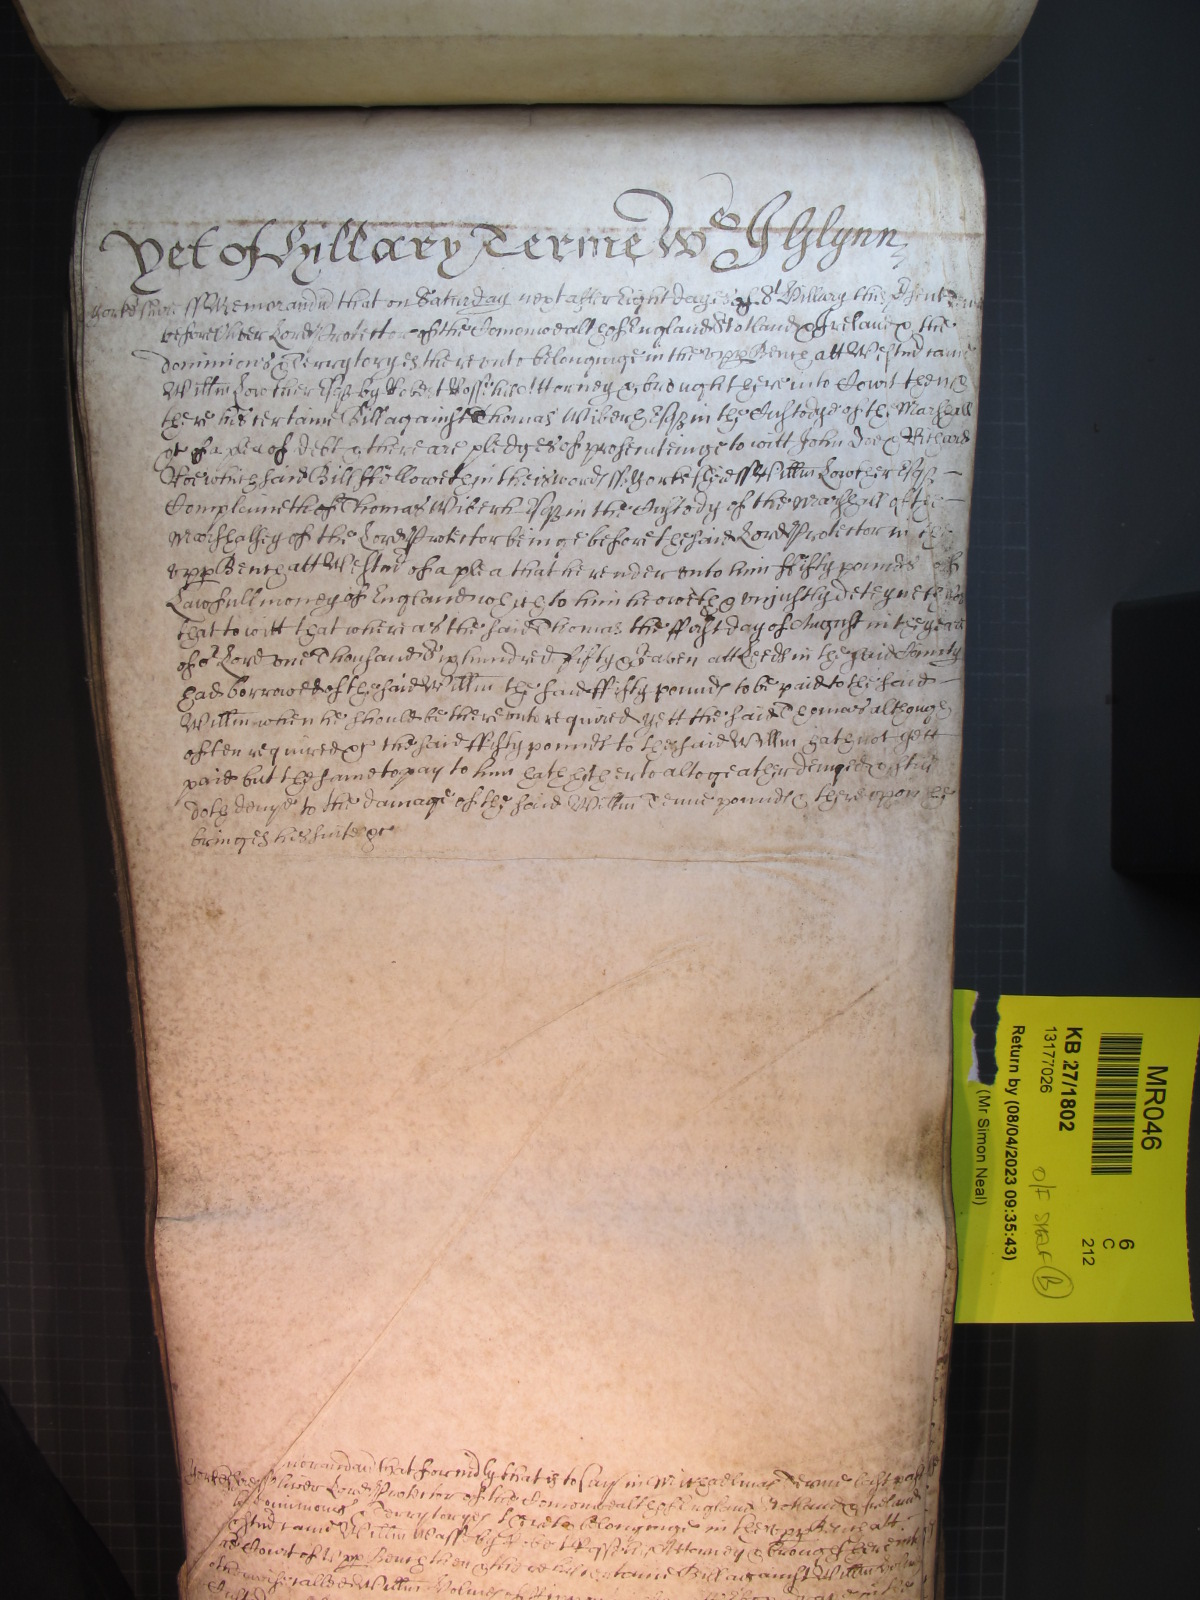 Yet of Hillary Terme Wth J Glynn
Yorkshire ss Memorandu that on Saturday next after Eight dayes of St Hillary this psent Terme
before Oliver Lord Protector of the Comonwealth of England Scotland & Ireland & the
dominions & Terrytoryes thereunto belonginge in the upp Bench att Westmr came
Willm Lowther Esqr by Robert Attorney & brought here into Court then &
there his certaine Bill against Thomas Wiberh Esqr in the Custodye of the Marshall
&c of a plea of debt & there are pledges of prosecuteinge to witt John Doe & Richard
Roe which said Bill ffolloweth in theis words ss Yorkshire ss Willm Lowther Esqr
Complaineth of Thomas Wiberh Esqr in the Custody of the Marshall of the
Marshalsey of the Lord Protector beinge before the said Lord Protector in the
upp Bench att Westmr of a plea that he render unto him ffifty pounds of
Lawfull money of England which to him he oweth & uniustly deteyneth for
that to witt that whereas the said Thomas the ffirst day of August in the yeare
of or Lord one Thousand Six hundred fifty & Seaven att Leeds in the said County
had borrowed of the said Willm the said ffifty pounds to be paid to the said
Willm when he should be thereunto required yett the said Thomas although
often required &c the said ffifty pounds to the said Willm hath not yett
paid but the same to pay to him hath hitherto altogeather denyed & still
doth denye to the damage of the said Willm Tenne pounds & thereupon he
bringes his suite &c
Yorkshire ss morandu that formerly that is to say in Michaelmas Terme last past
Oliver Lord Protector of the Comonwealth of England Scotland & Ireland
dominions & Terrytoryes thereto belonginge in the upp Bench att
Westmr came Willm by Robert Attorney & brought here into
Court of upp Bench then & there his certaine Bill against Willm
otherwise called Willm Holmes of
MR046
6
C
212
KB 27/1802
13177026
O/F SHELF (B)
Return by (08/04/2023 09:35:43)
(Mr Simon Neal)